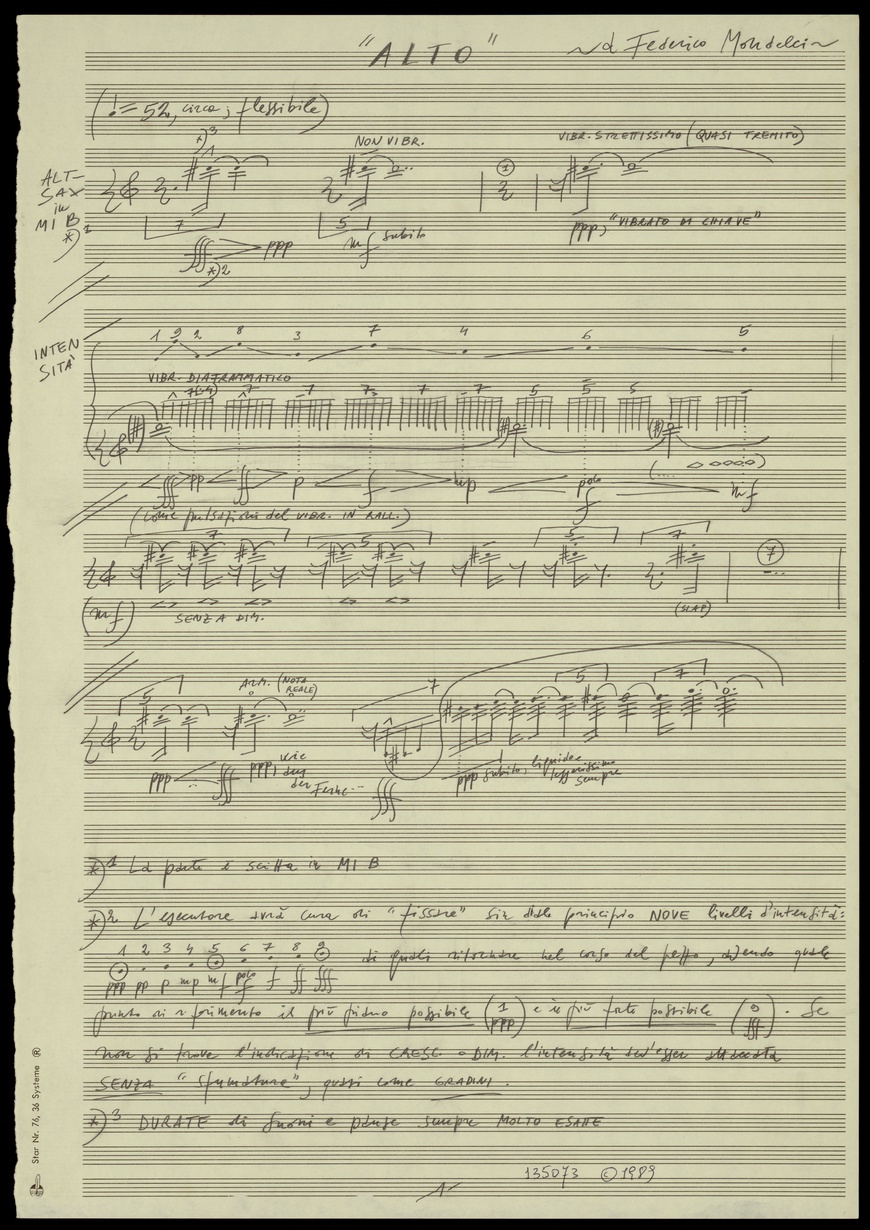 "ALTO"
~a Federico Mondelci~
(♩= 52, circa; flessibile)
*)3
NON VIBR.
VIBR. STRETTISSIMO (QUASI TREMITO)
ALT-
SAX
in
MI B
*)1
1
7
5
ppp, "VIBRATO DI CHIAVE"
fff > ppp
mf subito
*)2
INTEN
SITÀ
1 9 2 8 3 7 4 6 5
VIBR. DIAFRAMMATICO
7 7 7 7 7 7 5 5 5 5
fff pp ff p f mp poco f mf
(come pulsazioni del VIBR. IN RALL.)
7 5 5 7
7
(mf)
SENZA DIM.
(SLAP)
5
ARM. (NOTA
REALE)
7
5 7
ppp fff
ppp, wie
aus
der Ferne...
fff
ppp subito, liquido e
leggerissimo
sempre
*)1 La parte è scritta in MI B
*)2 L'esecutore avrà cura di "fissare" sin dal principio NOVE livelli d'intensità:
1 2 3 4 5 6 7 8 9
ppp pp p mp mf poco f f ff fff
ai quali ritornare nel corso del pezzo, avendo quale
punto di riferimento il più piano possibile (1 ppp) e il più forte possibile (9 fff). Se
non si trova l'indicazione di CRESC. o DIM. l'intensità dev'esser attaccata
SENZA "sfumature", quasi come GRADINI.
*)3 DURATE di suoni e pause sempre MOLTO ESATTE
135073 ©1989
1
Star Nr. 76, 36 Systeme ®